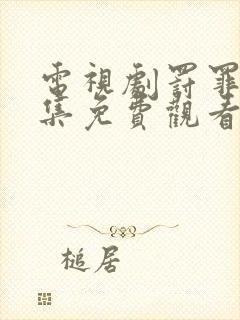 電視劇罸罪
集免費觀看
槌居